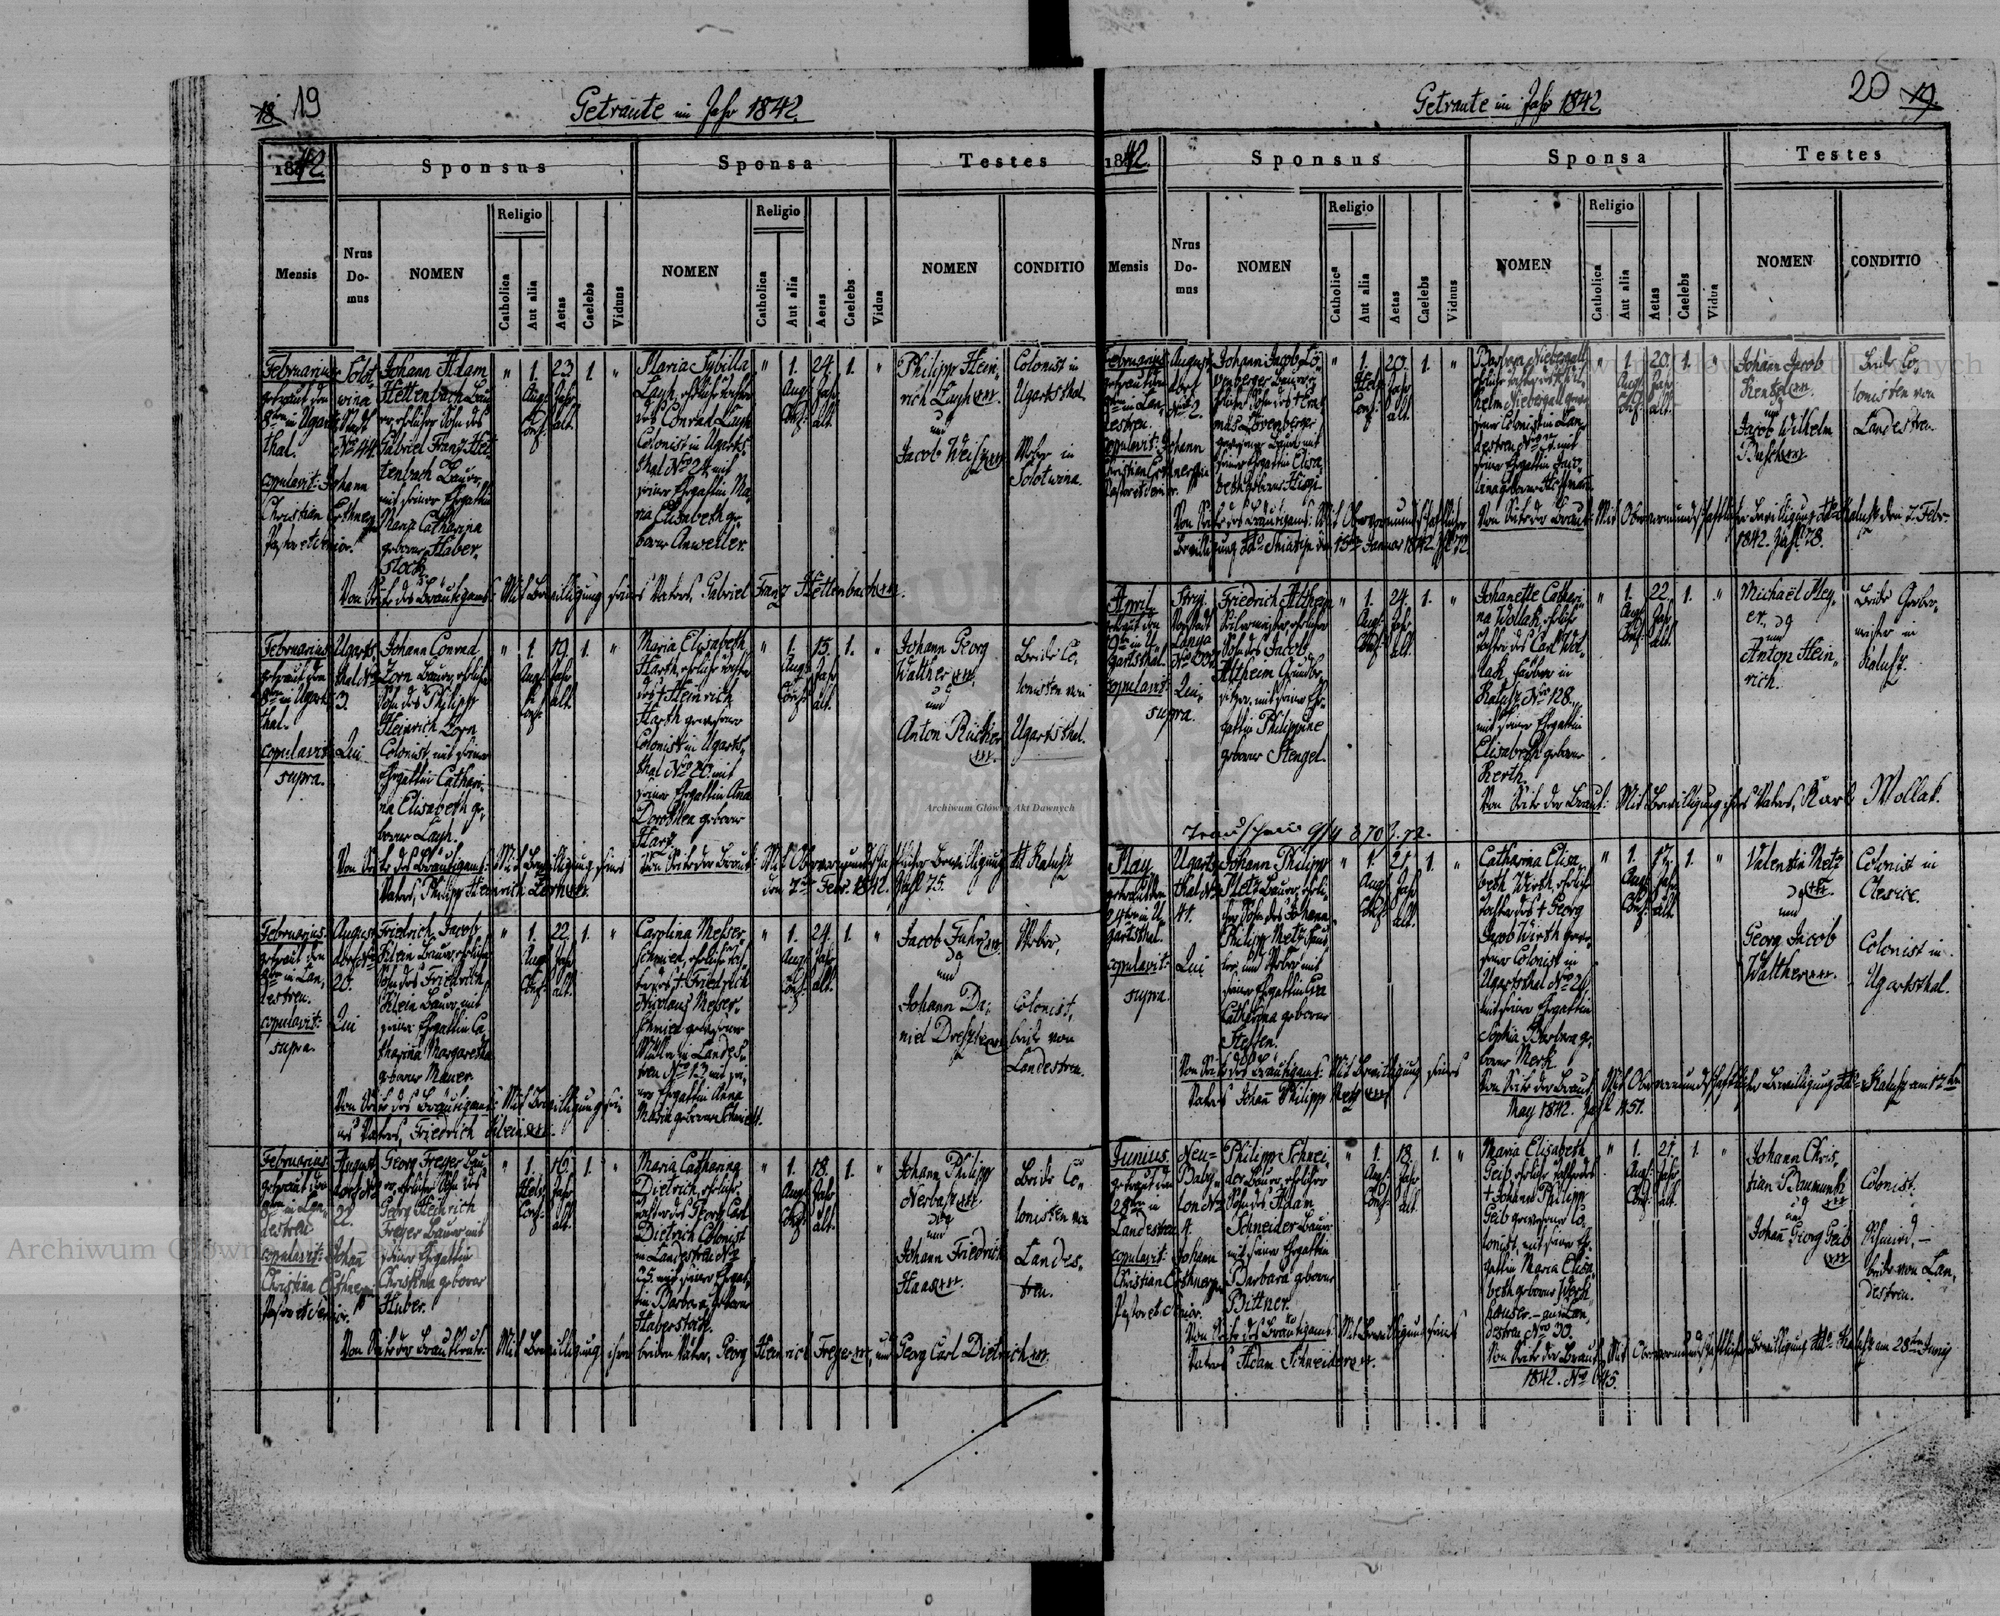 18. 19
Getraute im Jahr 1842.
1842.
Sponsus
Sponsa
Testes
Mensis
Nrus Do-mus
NOMEN
Religio
Catholica
Aut alia
Aetas
Caelebs
Viduus
NOMEN
Religio
Catholica
Aut alia
Aetas
Caelebs
Vidua
NOMEN
CONDITIO
Februarius
getraut den
8ten in Ugarts
thal.
copulavit: Johann
Christian Csthneryi
Pastor et Senior.
Solot
wina
Stadt
No 44.
Johann Adam
Hettenbach Bau
er, ehlicher Sohn des
Gabriel Franz Het
tenbach Bauer,
mit seiner Ehgattin
Maria Catharina
geborne Haber-
stock
" 1. Aug. Conf. 23 Jahr alt. 1. "
Maria Sybilla
Layh, ehliche Tochter
des Conrad Layh
Colonist in Ugarts-
thal No 24 mit
seiner Ehgattin Ma-
ria Elisabeth ge-
borne Anweiler.
" 1. Aug. Conf. 24. Jahr alt. 1. "
Philipp Hein-
rich Layh
und
Jacob Weiß
Colonist in
Ugartsthal.
Weber in
Solotwina.
Von Seite des Bräutigams: Mit Bewilligung seines Vaters, Gabriel Franz Hettenbach
Februarius
getraut den
8ten in Ugarts
thal.
copulavit: Qui
supra.
Ugarts
thal No
3.
Johann Conrad
Zorn Bauer, ehlicher
Sohn des Philipp
Heinrich Zorn
Colonist, mit seiner
Ehgattin Cathari-
na Elisabeth ge-
borne Layh.
" 1. Aug. Conf. 19. Jahr alt. 1. "
Maria Elisabeth
Harth, ehliche Tochter
des + Heinrich
Harth gewesener
Colonist in Ugarts-
thal No 20. mit
seiner Ehgattin Ana
Dorothea geborne
Harz.
" 1. Aug. Conf. 15. Jahr alt. 1. "
Johann Georg
Walther
und
Anton Rücker
Beide Co-
lonisten von
Ugartsthal.
Von Seite des Bräutigams: Mit Bewilligung seines
Vaters, Philipp Heinrich Zorn
Von Seite der Braut: Mit Obervormundschaftlicher Bewilligung dto Kalusz
den 7ten Febr. 1842. Zahl 75.
Februarius.
getraut den
8ten in Lan-
destreu.
copulavit: Qui
supra.
August
dorf No
20.
Friedrich Jacob
Klein Bauer, ehlicher
Sohn des Friedrich
Klein Bauer, mit
seiner Ehgattin Ca-
tharina Margaretha
geborne Mauer.
" 1. Aug. Conf. 22. Jahr alt. 1. "
Carolina Messer-
schmied, ehliche Toch-
ter des + Friedrich
Nicolaus Messer-
schmied gewesener
Müller in Landes-
treu No 13 mit sei-
ner Ehgattin Anna
Maria geborne Schmidt.
" 1. Aug. Conf. 24. Jahr alt. 1. "
Jacob Fuhr
und
Johann Da-
niel Dreßler
Weber,
Colonist,
beide von
Landestreu.
Von Seite des Bräutigams: Mit Bewilligung sei-
nes Vaters, Friedrich Klein
Februarius
getraut den
8ten in Lan-
destreu.
copulavit: Johann
Christian Csthneryi
Pastor et Senior.
August
dorf No
22.
Georg Freyer Bau-
er, ehlicher Sohn des
Georg Heinrich
Freyer Bauer mit
seiner Ehgattin
Christina geborne
Huber.
" 1. Helv. Conf. 26 Jahr alt. 1. "
Maria Catharina
Dietrich, ehliche
Tochter des Georg Carl
Dietrich Colonist
in Landestreu No
25. mit seiner Ehgat-
tin Barbara geborne
Haberstock.
" 1. Aug. Conf. 18. Jahr alt. 1. "
Johann Philipp
Nerbaß
und
Johann Friedrich
Haas
Beide Co-
lonisten von
Landes-
treu.
Von Seite der Brautleute: Mit Bewilligung ihrer beiden Väter, Georg Heinrich Freyer, und Georg Carl Dietrich
20 19.
Getraute im Jahr 1842.
1842.
Sponsus
Sponsa
Testes
Mensis
Nrus Do-mus
NOMEN
Religio
Catholica
Aut alia
Aetas
Caelebs
Viduus
NOMEN
Religio
Catholica
Aut alia
Aetas
Caelebs
Vidua
NOMEN
CONDITIO
Februarius
getraut den
in Lan-
destreu.
copulavit: Johann
Christian Csthneryi
Pastor et Senior.
August
dorf
No 2.
Johann Jacob Lö-
wenberger Bauer,
ehlicher Sohn des
Löwenberger
gewesener Bauer mit
seiner Ehgattin Elisa-
beth geborne
" 1. Helv. Conf. 20. Jahr alt. 1. "
Barbara Niebergall
ehliche Tochter des Wil-
helm Niebergall gewe-
sener Colonist in Lan-
destreu mit
seiner Ehgattin
geborne Hoffmann
" 1. Aug. Conf. 20. Jahr alt. 1. "
Johann Jacob
Renkel
und
Jacob Wilhelm
Busch
Beide Co-
lonisten von
Landestreu.
Von Seite des Bräutigams: Mit Obervormundschaftlicher
Bewilligung dto Januar 1842. Zahl 72
Von Seite der Braut: Mit Obervormundschaftlicher Bewilligung dto Kalusz den 7. Febr.
1842. Zahl 73.
April
getraut den
9ten in U-
gartsthal.
copulavit: Qui
supra.
Stryi
Vorstadt
Lanya
Friedrich Altheim
ehlicher
Sohn des Jacob
Altheim Grundbe-
sitzer, mit seiner Eh-
gattin Philippine
geborne Stengel.
" 1. Aug. Conf. 24 Jahr alt. 1. "
Johanette Cathari-
na Wollak, ehliche
Tochter des Carl Wol-
lak, Färber in
Kalusz No 128.
mit seiner Ehgattin
Elisabeth geborne
Kerth.
" 1. Aug. Conf. 22. Jahr alt. 1. "
Michaël Mey-
er,
und
Anton Hein-
rich.
Beide Gerber-
meister in
Kalusz.
Von Seite der Braut: Mit Bewilligung ihres Vaters, Karl Wollak.
Trauschein 9/4 870 Z. 72.
May
getraut den
24ten in U-
gartsthal.
copulavit: Qui
supra.
Ugarts
thal No
41.
Johann Philipp
Metz Bauer, ehli-
cher Sohn des Johann
Philipp Metz
und Weber mit
seiner Ehgattin Eva
Catharina geborne
Steffen.
" 1. Aug. Conf. 21. Jahr alt. 1. "
Catharina Elisa-
beth Wirth, ehliche
Tochter des + Georg
Jacob Wirth gewe-
sener Colonist in
Ugartsthal No 26
mit seiner Ehgattin
Sophia Barbara ge-
borne Merk
" 1. Aug. Conf. 17. Jahr alt. 1. "
Valentin Metz
und
Georg Jacob
Walther
Colonist in
Colonist in
Ugartsthal.
Von Seite des Bräutigams: Mit Bewilligung seines
Vaters Johann Philipp Metz
Von Seite der Braut: Mit Obervormundschaftlicher Bewilligung dto Kalusz am 17ten
May 1842. Zahl 451.
Junius.
getraut den
28ten in
Landestreu
copulavit: Johann
Christian Csthneryi
Pastor et Senior.
Neu-
Baby-
lon No
4.
Philipp Schnei-
der Bauer, ehlicher
Sohn des Adam
Schneider Bauer
mit seiner Ehgattin
Barbara geborne
Bittner.
" 1. Aug. Conf. 18. Jahr alt. 1. "
Maria Elisabeth
Geib, ehliche Tochter des
+ Johann Philipp
Geib gewesener Co-
lonist, mit seiner Eh-
gattin Maria Elisa-
beth geborne
in Lan-
destreu No 30.
" 1. Aug. Conf. 21. Jahr alt. 1. "
Johann Chris-
tian Baumunk
und
Johann Georg Geib
Colonist.
Schmied, –
beide von Lan-
destreu.
Von Seite des Bräutigams: Mit Bewilligung seines
Vaters Adam Schneider
Von Seite der Braut: Mit Obervormundschaftlicher Bewilligung dto Kalusz am 28ten Juny
1842. No 645.
Archiwum Główne Akt Dawnych